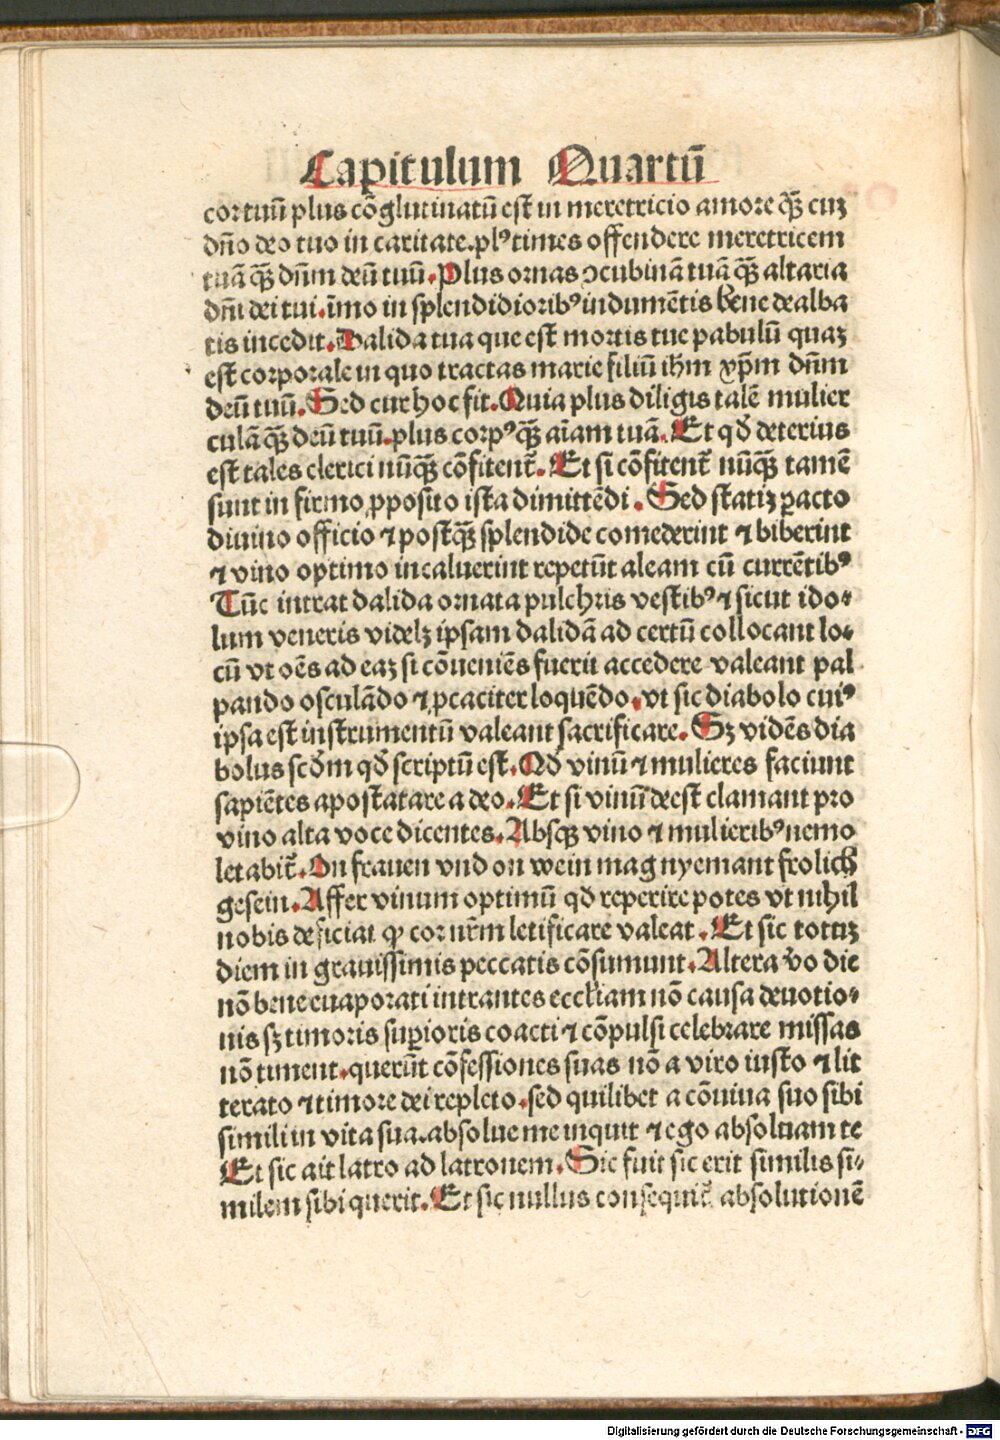 Capitulum Quartū
cor tuū plus cōglutinatū est in meretricio amore qꝫ̄ cuꝫ
dn̄o deo tuo in caritate.plꝰ times offendere meretricem
tuā qꝫ̄ dn̄m deū tuū.Plus ornas ↄcubinā tuā qꝫ̄ altaria
dn̄i dei tui.īmo in splendidioribꝰ indumētis bene dealba
tis incedit.Dalida tua que est mortis tue pabulū quaꝫ
est corporale in quo tractas marie filiū ihm xp̄m dn̄m
deū tuū.Sed cur hoc fit.Quia plus diligis talē mulier
culā qꝫ̄ deū tuū.plus corpꝰ qꝫ̄ aīam tuā.Et qđ deterius
est tales clerici nūqꝫ̄ cōfitent᷑.Et si cōfitent᷑ nūqꝫ̄ tamē
sunt in firmo ꝓposito ista dimittēdi.Sed statiꝫ ꝑacto
diuino officio ⁊ postqꝫ̄ splendide comederint ⁊ biberint
⁊ vino optimo incaluerint repetūt aleam cū currētibꝰ
Tūc intrat dalida ornata pulchris vestibꝰ ⁊ sicut ido-
lum veneris videlꝫ ipsam dalidā ad certū collocant lo-
cū vt oēs ad eaꝫ si cōueniēs fuerit accedere valeant pal
pando osculādo ⁊ ꝓcaciter loquēdo.vt sic diabolo cuiꝰ
ipsa est instrumentū valeant sacrificare.Sꝫ vidēs dia
bolus scđm qđ scriptū est.Qđ vinū ⁊ mulieres faciunt
sapiētes apostatare a deo.Et si vinū deest clamant pro
vino alta voce dicentes.Absqꝫ vino ⁊ mulieribꝰ nemo
letabit᷑.On frauen vnd on wein mag nyemant frolich
gesein.Affer vinum optimū qđ reperire potes vt nihil
nobis deficiat ꝙ cor nr̄m letificare valeat.Et sic totuꝫ
diem in grauissimis peccatis cōsumunt.Altera v̄o die
nō bene euaporati intrantes eccłiam nō causa deuotio-
nis sꝫ timoris suꝑioris coacti ⁊ cōpulsi celebrare missas
nō timent.querūt cōfessiones suas nō a viro iusto ⁊ lit
terato ⁊ timore dei repleto.sed quilibet a cōuiua suo sibi
simili in vita sua.absolue me inquit ⁊ ego absoluam te
Et sic ait latro ad latronem.Sic fuit sic erit similis si-
milem sibi querit.Et sic nullus consequit᷑ absolutionē
Digitalisierung gefördert durch die Deutsche Forschungsgemeinschaft - DFG